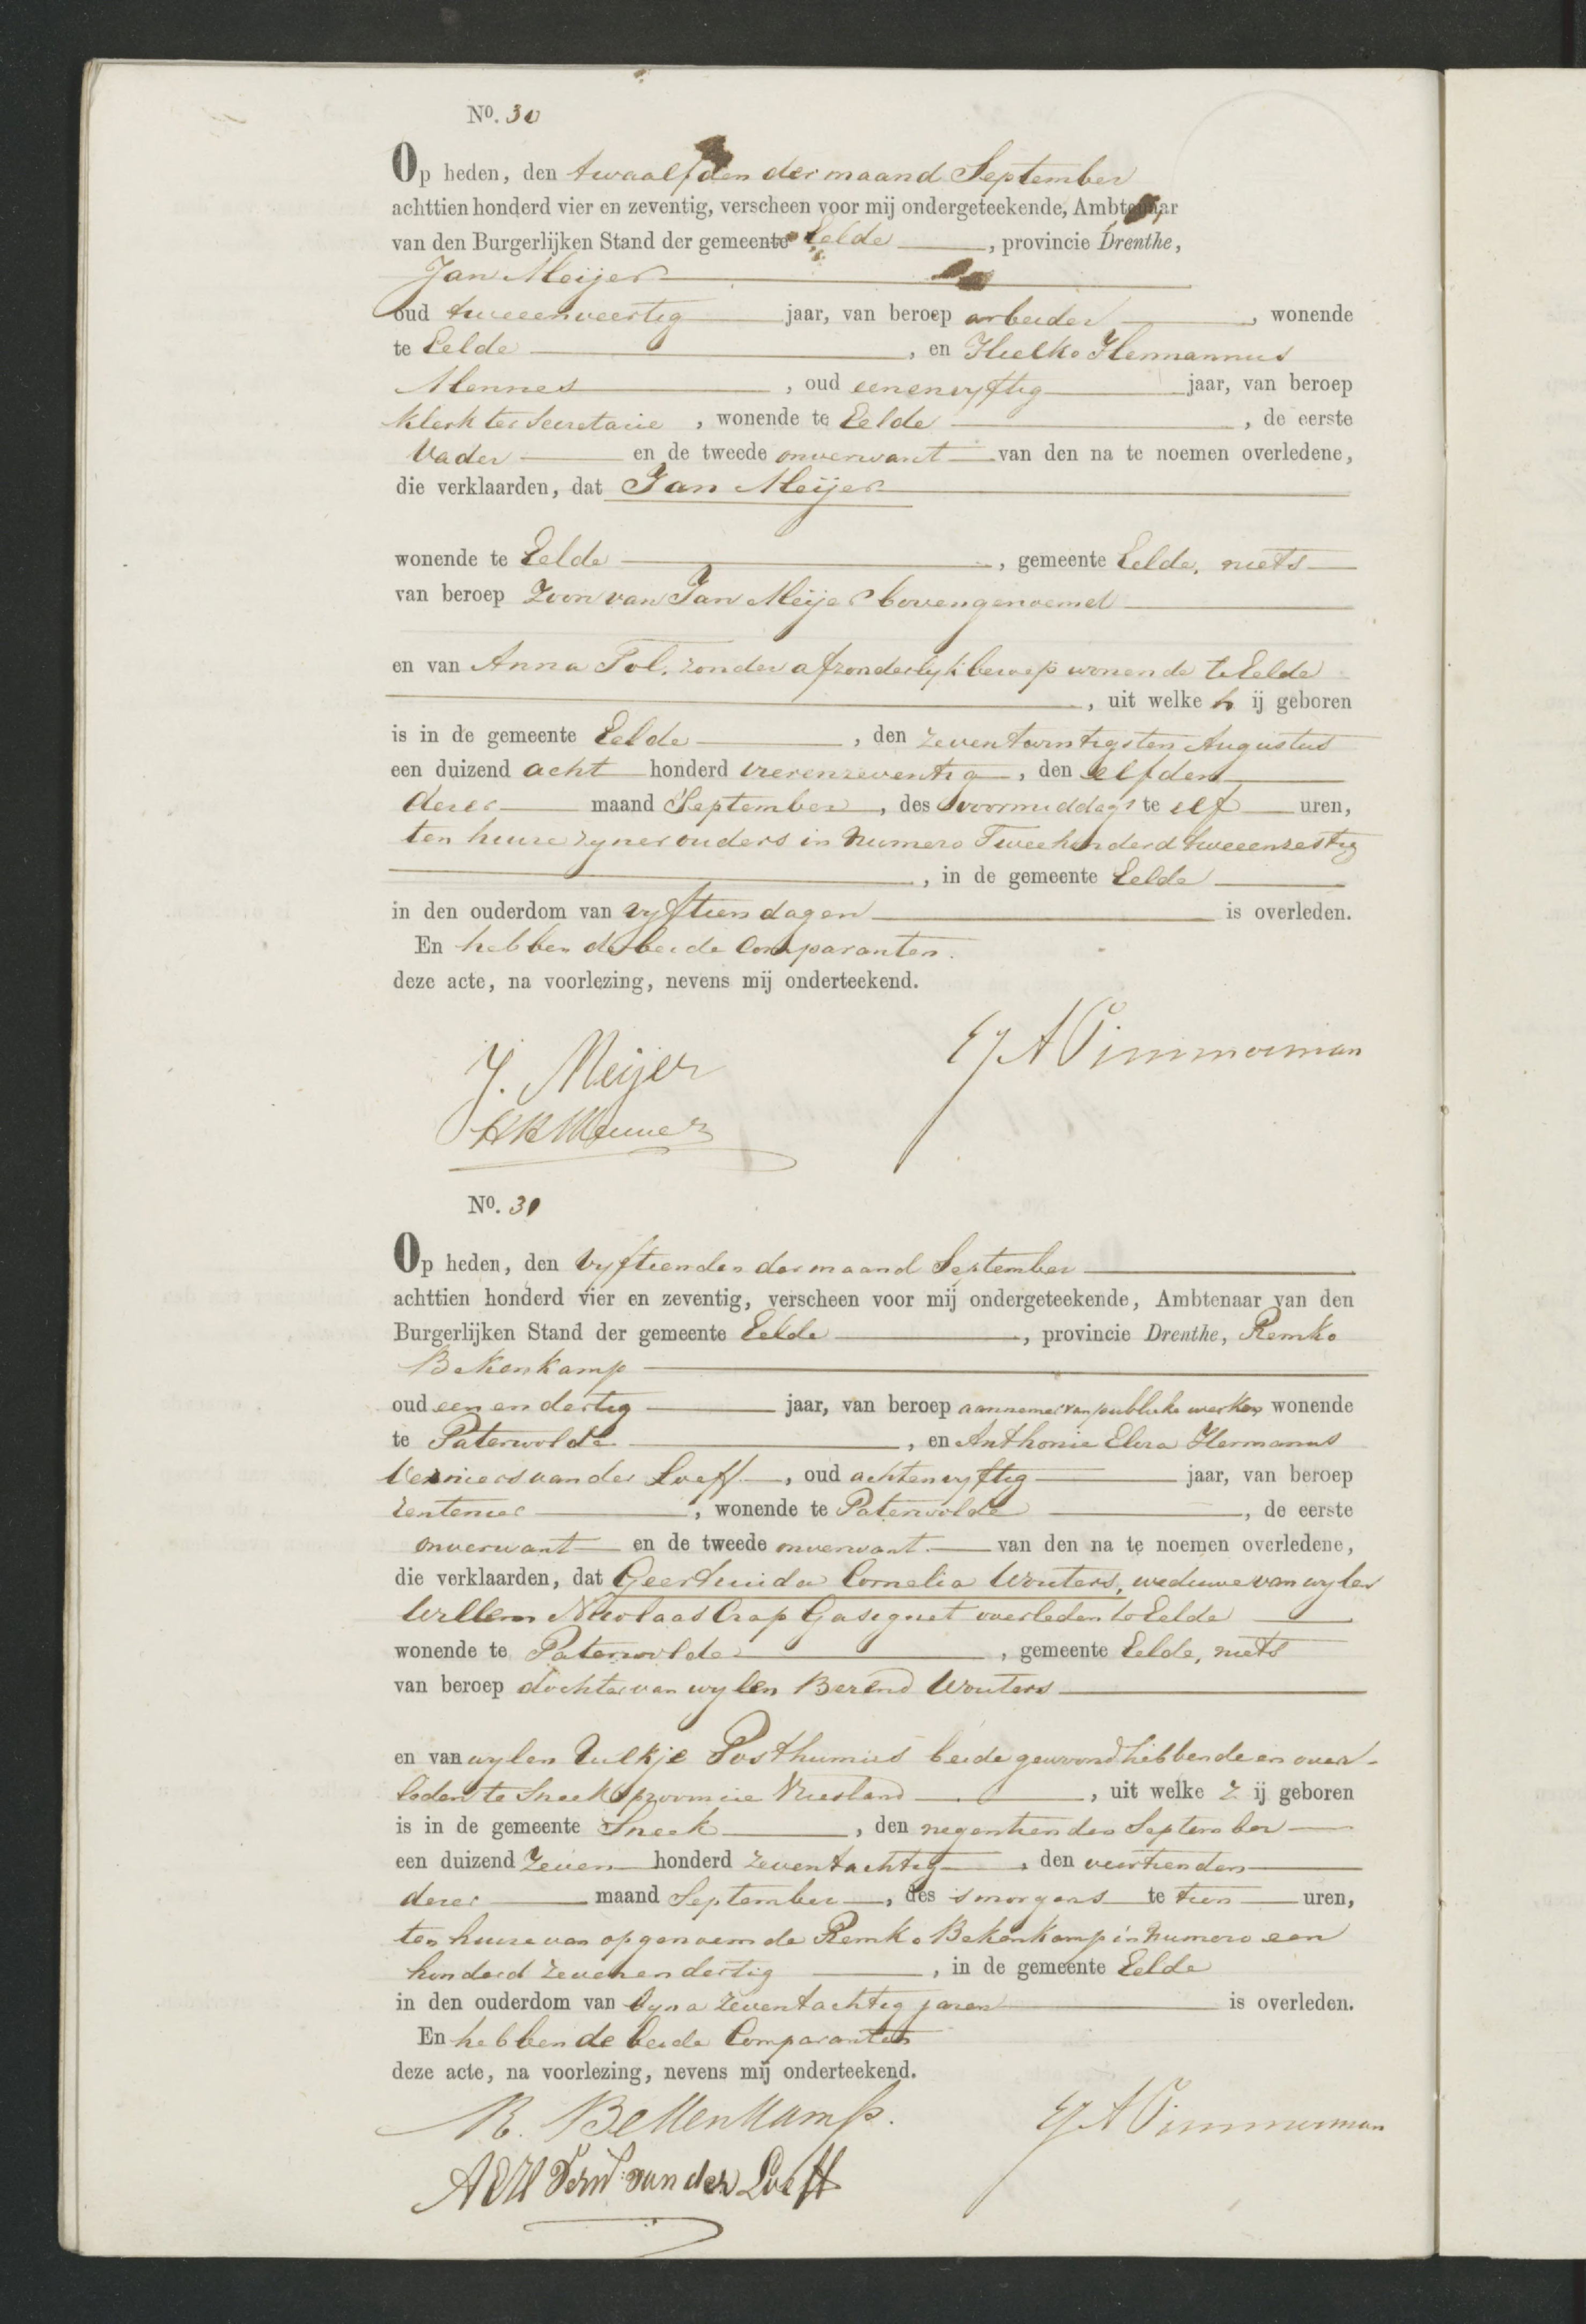 No. 30
Op heden, den twaalfden der maand September
achttien honderd vier en zeventig, verscheen voor mij ondergeteekende, Ambtenaar
van den Burgerlijken Stand der gemeente Eelde, provincie Drenthe,
Jan Meijer
oud tweeenveertig jaar, van beroep arbeider, wonende
te Eelde, en Hielko Hermannus
Mennes, oud eenenvyftig jaar, van beroep
klerk ter Secretarie, wonende te Eelde, de eerste
Vader en de tweede onverwant van den na te noemen overledene,
die verklaarden, dat Jan Meijer
wonende te Eelde, gemeente Eelde, niets
van beroep Zoon van Jan Meijer bovengenoemd
en van Anna Tol, zonder afzonderlyk beroep wonende te Eelde
, uit welke hij geboren
is in de gemeente Eelde, den zeventwintigsten Augustus
een duizend acht honderd vierenzeventig, den elfden
dezer maand September, des voormiddags te elf uren,
ten huize zyner ouders in Numero Tweehonderd tweeenzestig
, in de gemeente Eelde
in den ouderdom van vyftien dagen is overleden.
En hebben de beide Comparanten
deze acte, na voorlezing, nevens mij onderteekend.
J. Meijer
HH Mennes
Timmerman
No. 31
Op heden, den vyftienden der maand September
achttien honderd vier en zeventig, verscheen voor mij ondergeteekende, Ambtenaar van den
Burgerlijken Stand der gemeente Eelde, provincie Drenthe, Remko
Bekenkamp
oud een en dertig jaar, van beroep aannemer van publieke werken wonende
te Paterwolde, en Anthonie Elvra Hermanus
van der Loeff, oud achtenvyftig jaar, van beroep
rentenier, wonende te Paterwolde, de eerste
onverwant en de tweede onverwant van den na te noemen overledene,
die verklaarden, dat Geertruida Cornelia Wouters, weduwe van wylen
Willem Nikolaas Crap Gasignet overleden te Eelde
wonende te Paterwolde, gemeente Eelde, niets
van beroep dochter van wylen Berend Wouters
en van wylen Posthumus beide gewoond hebbende en over-
leden te Sneek provincie Vriesland, uit welke zij geboren
is in de gemeente Sneek, den negentienden September
een duizend Zeven honderd zeventachtig, den veertienden
dezer maand September, des smorgens te tien uren,
ten huize van opgenoemde Remko Bekenkamp in Numero een
honderd zevenendertig, in de gemeente Eelde
in den ouderdom van byna zeventachtig jaren is overleden.
En hebben de beide Comparanten
deze acte, na voorlezing, nevens mij onderteekend.
R. Bekkenkamp.
Timmerman
van der Loeff